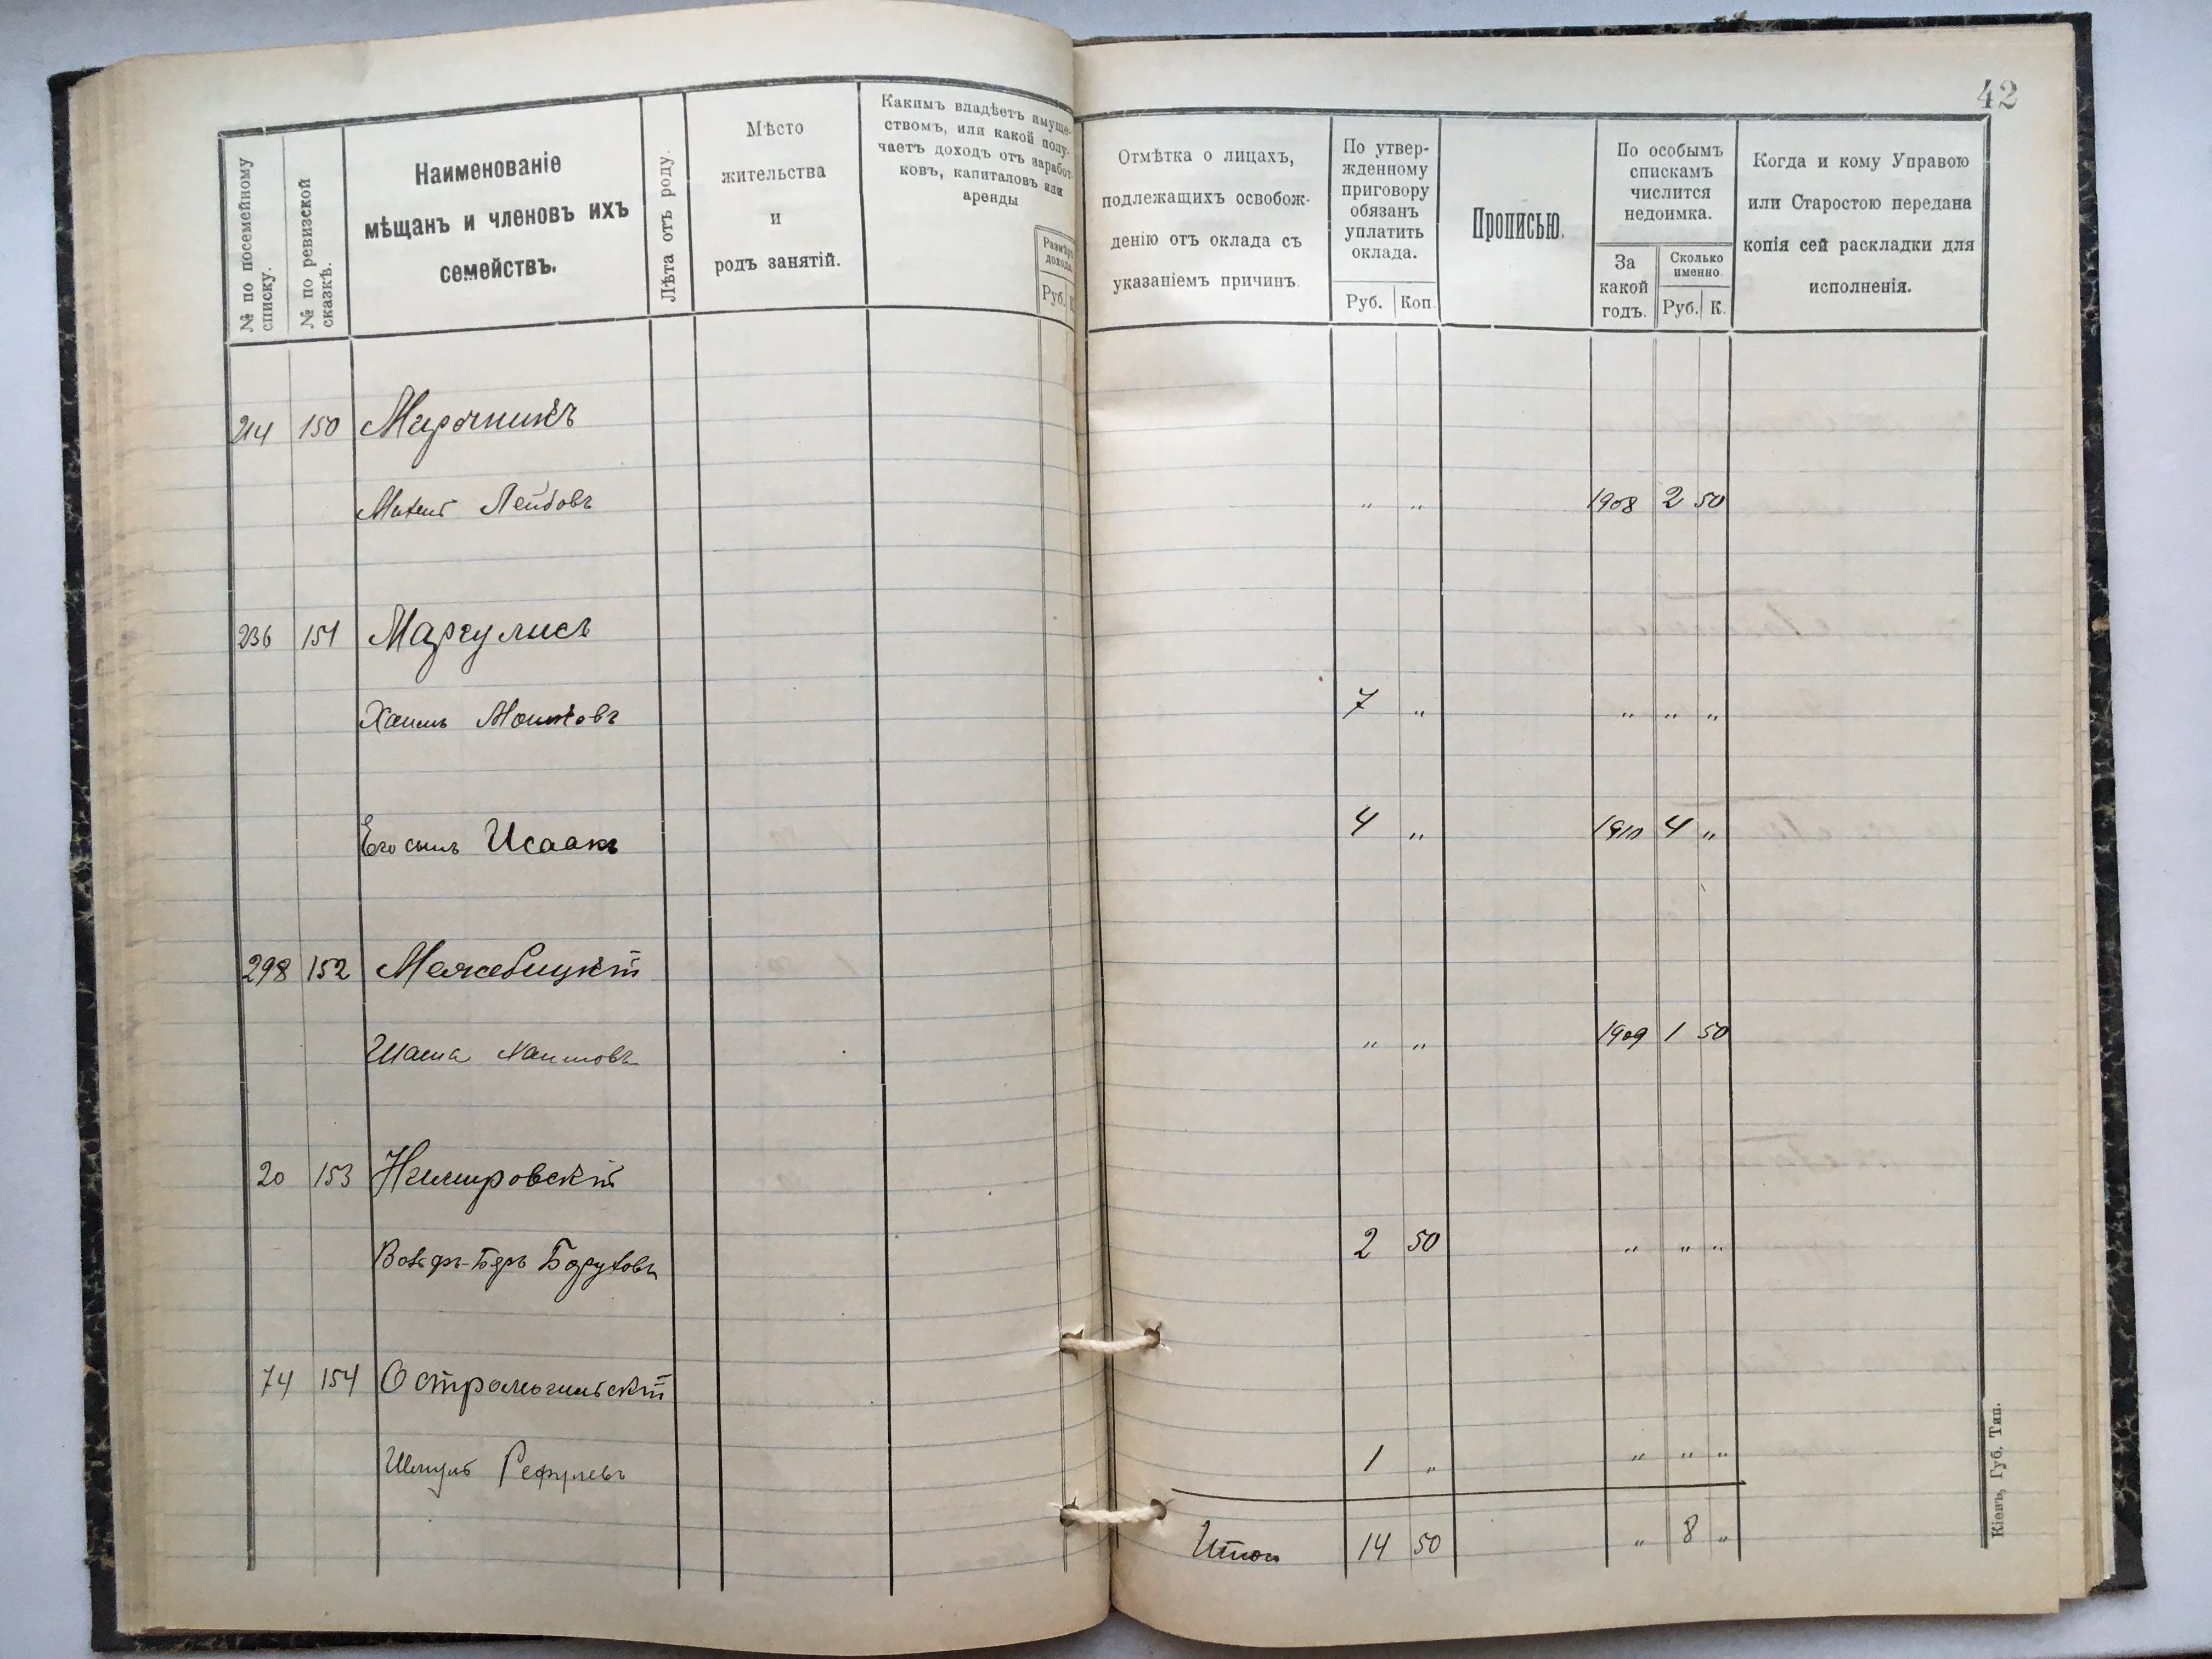 42
№ по посемейному списку.
№ по ревизской сказкѣ.
Наименованіе
мѣщанъ и членовъ ихъ
семействъ.
Лѣта отъ роду.
Мѣсто
жительства
и
родъ занятій.
Какимъ владѣетъ имуще-
ствомъ, или какой полу-
чаетъ доходъ отъ заработ-
ковъ, капиталовъ или
аренды
Размѣръ
дохода.
Руб. К
Отмѣтка о лицахъ,
подлежащихъ освобож-
денію отъ оклада съ
указаніемъ причинъ.
По утвер-
жденному
приговору
обязанъ
уплатить
оклада.
Руб. Коп.
Прописью.
По особымъ
спискамъ
числится
недоимка.
За
какой
годъ.
Сколько
именно.
Руб. К.
Когда и кому Управою
или Старостою передана
копія сей раскладки для
исполненія.
214 150 Мирочникъ
Лейбовъ " " 1908 2 50
236 151 Маргулисъ
Хаимъ Мошковъ 7 " " " "
Его сынъ Исаакъ 4 " 1910 4 "
298 152 Межебицкій
Хаимовъ " " 1909 1 50
20 153 Немировскій
Вольфъ-Беръ Боруховъ 2 50 " " "
74 154 Остромогильскій
Шмуль 1 " " " "
Итого 14 50 " 8 "
Кіевъ, Губ. Тип.